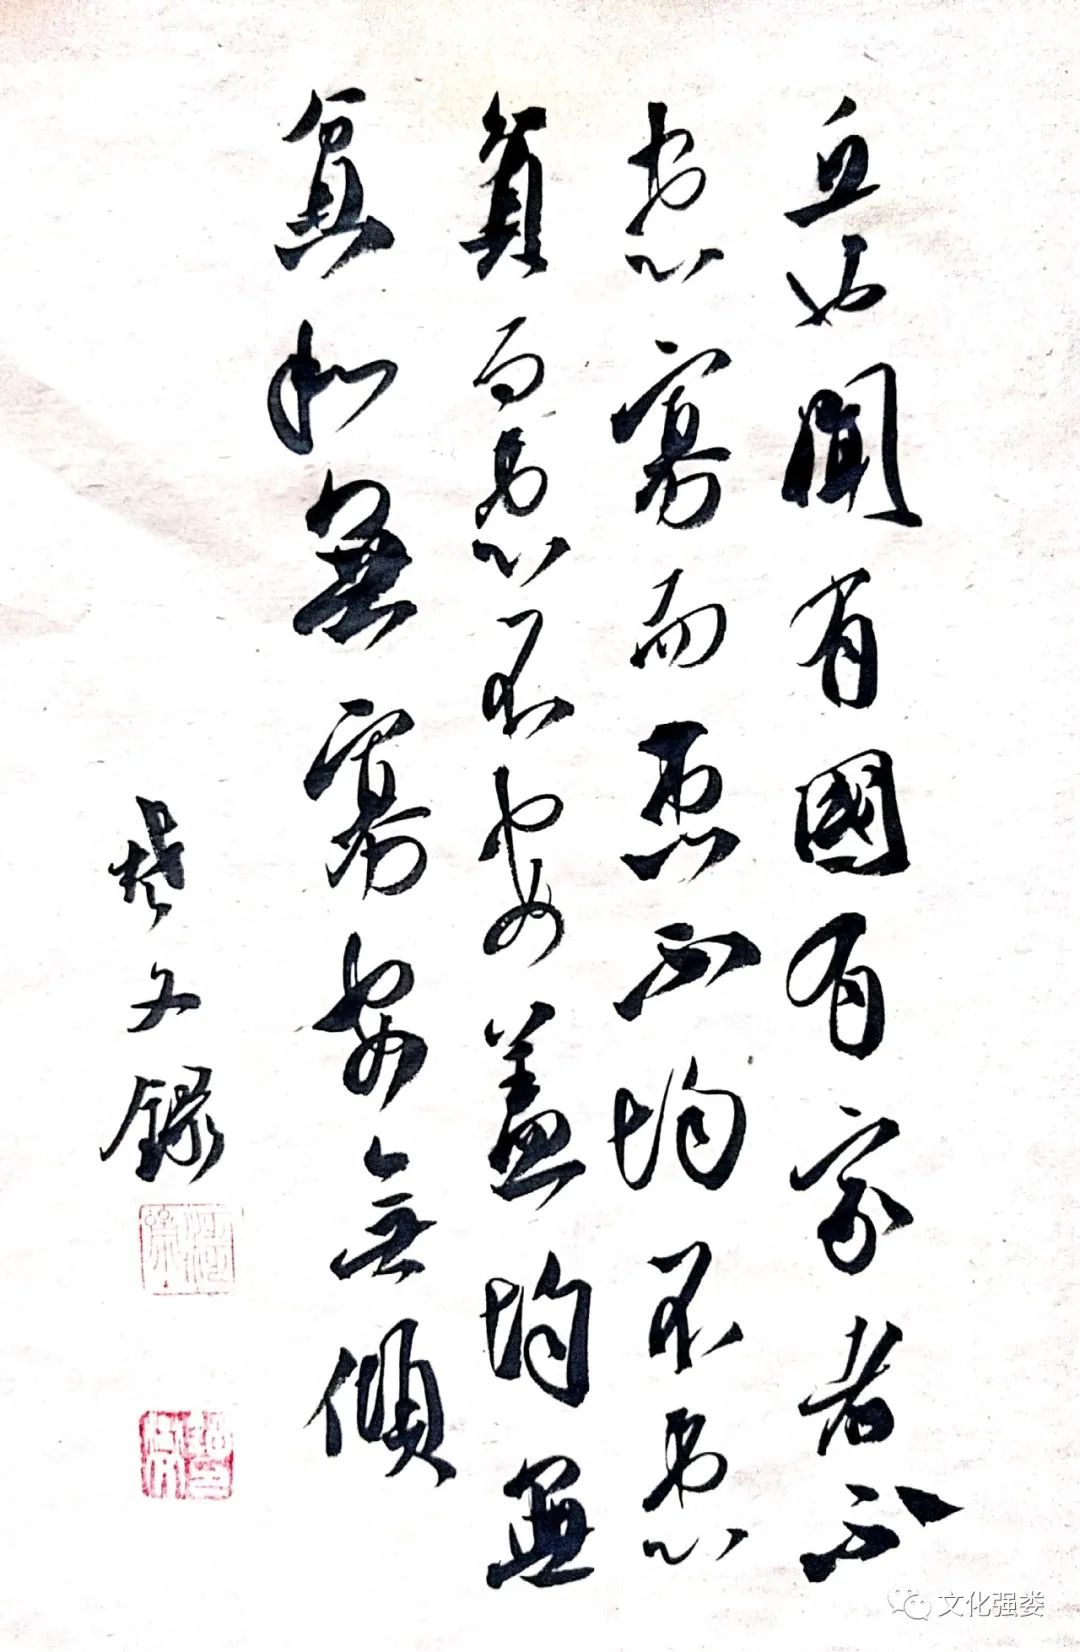 丘也聞有國有家者不
患寡而患不均不患
貧而患不安蓋均無
貧和無寡安無傾
文錄
文化强娄